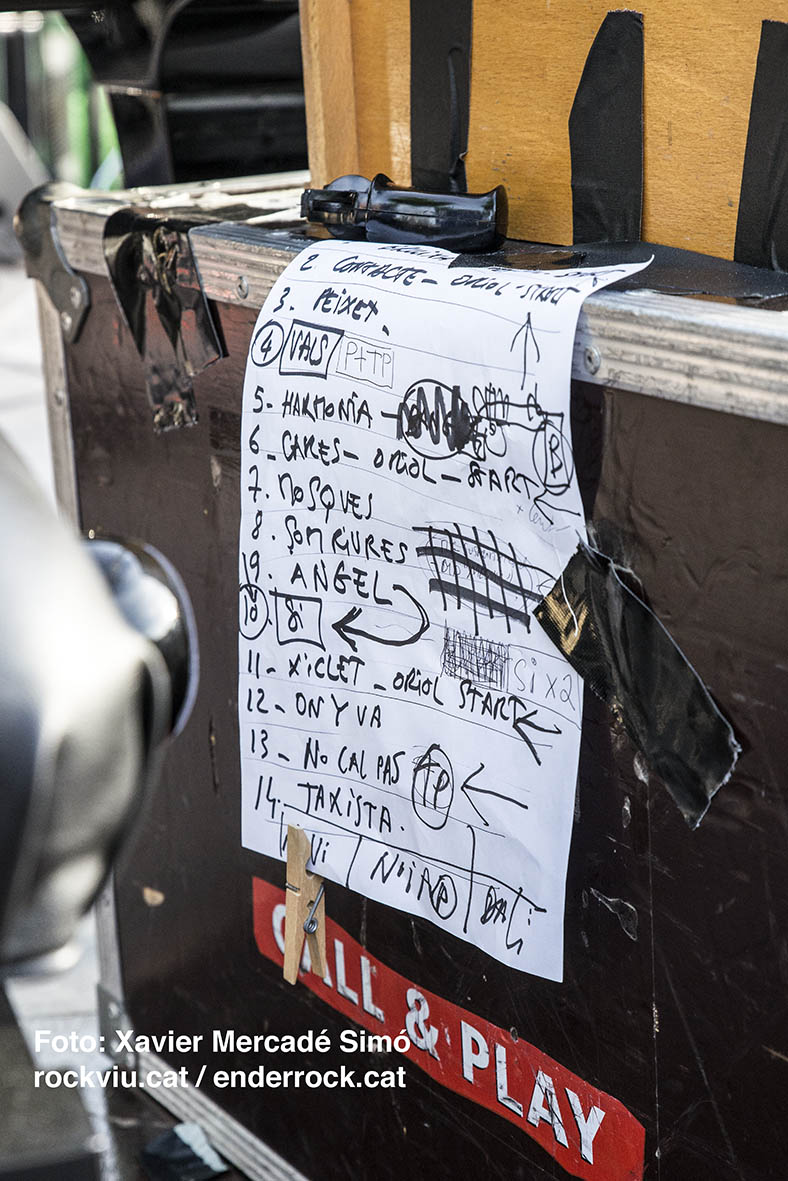 2. CONTACTE - ORIOL - START
3. PEIXET
4 VALS P+TP
5 - HARMONIA -
B
6. CARES - ORIOL - START
7. MOSQUES
8. SOMRIURES
9. ANGEL
10. Si
11 - XiCLET - ORiOL START
Si x2
12 - ON Y VA
13 - NO CAL PAS TP
14. TAXiSTA.
Vi NOiA P DALÍ
CALL & PLAY
Foto: Xavier Mercadé Simó
rockviu.cat / enderrock.cat